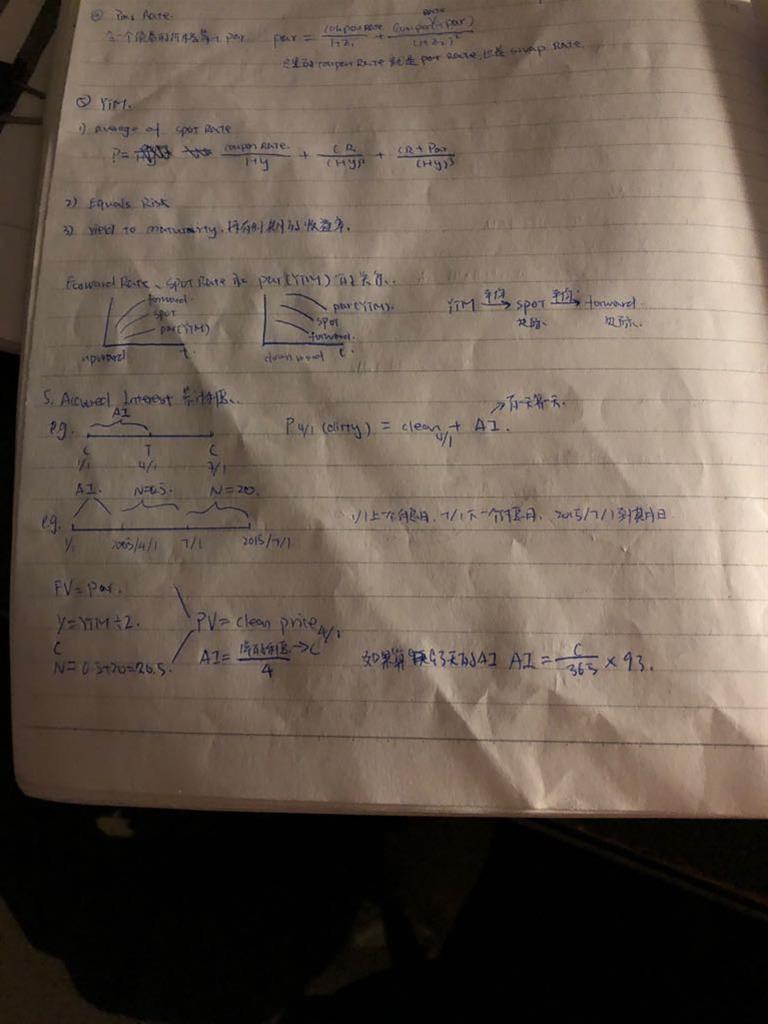 ④ Par Rate.
令一个债券的价格等于 par. par = coupon Rate / 1+Z₁ + (coupon Rate + par) / (1+Z₂)²
这里的 coupon Rate 就是 par Rate, 也是 swap Rate.
⑤ YTM.
1) average of spot Rate
P = coupon Rate / 1+y + CR / (1+y)² + CR + Par / (1+y)³
2) Equals Risk
3) Yield to maturity. 持有到期的收益率.
Forward Rate、spot Rate 和 par(YTM) 的关系.
forward.
spot
par(YTM)
upward t.
par(YTM).
spot
forward.
downward t.
YTM 平均→ spot 平均→ forward
5. Accured Interest
AI
e.g.
C T C
1/1 4/1 7/1
P 4/1 (dirty) = clean 4/1 + AI.
AI. N=0.5. N=20.
e.g.
1/1 2005/4/1 7/1 2015/7/1
1/1上一个付息日, 7/1下一个付息日, 2015/7/1到期日
FV = par.
Y = YTM ÷ 2.
C
N = 0.5+20 = 20.5.
PV = clean price 4/1
AI = → C / 4
如果算 93天的AI AI = C / 365 × 93.